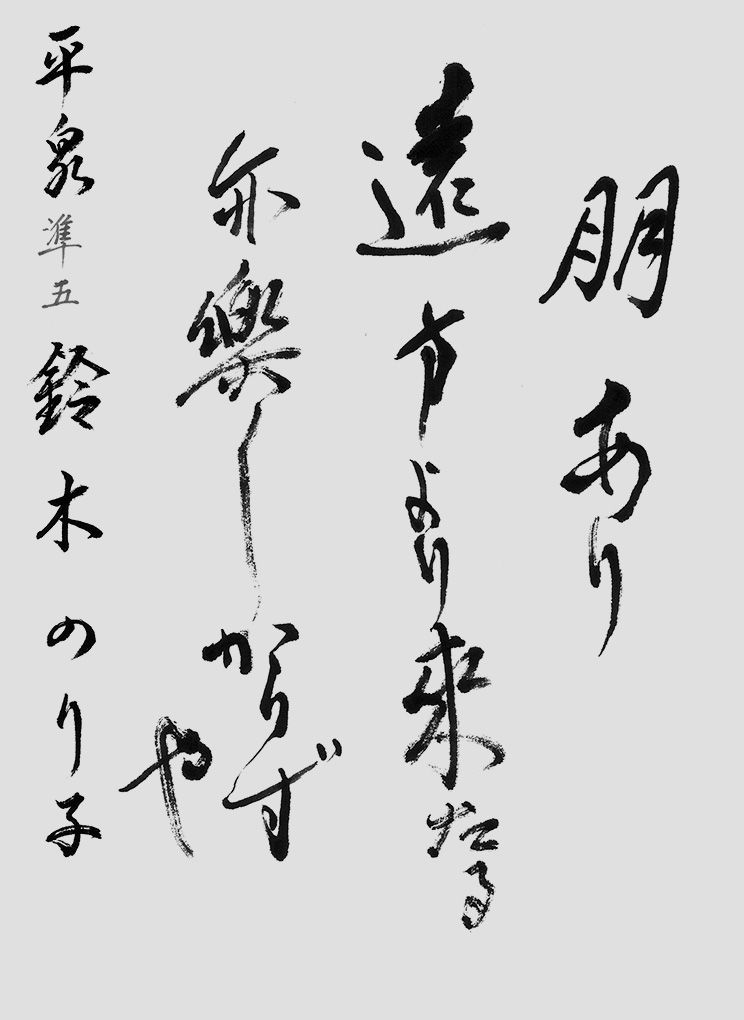 朋あり
遠方より來たる
亦樂しからずや
平泉 準五 鈴木のり子